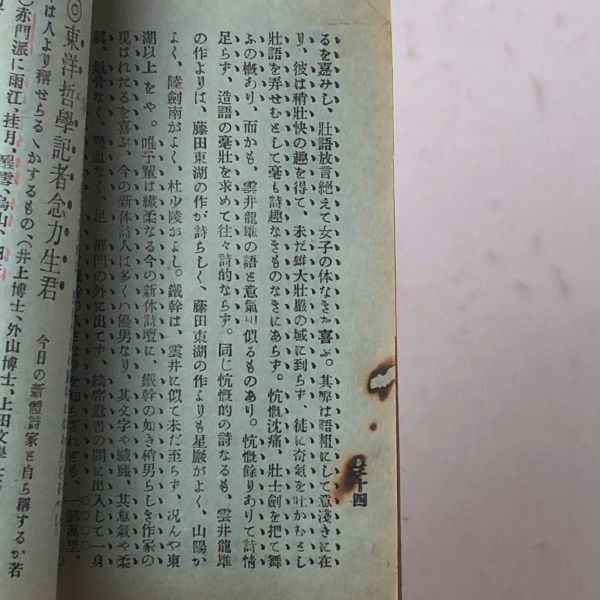 るを嘉みし、壯語放言絕えて女子の体なきを喜ぶ。其弊は語粗にして意淺きに在
り、彼は稍壯快の趣を得て、未だ雄大壯嚴の域に到らず、徒に奇氣を吐かむとし
壯語を弄せむとして毫も詩趣なきものなきにあらず。忼慨沈痛、壯士劍を把て舞
ふの槪あり、而かも、雲井龍雄の語と意氣に似るものあり。忼慨餘りありて詩情
足らず、造語の毫壯を求めて往々詩的ならず。同じ忼慨的の詩なるも、雲井龍雄
の作よりは、藤田東湖の作が詩らしく、藤田東湖の作よりも星巖がよく、山陽が
よく、陸劍南がよく、杜少陵がよし。鐵幹は、雲井に似て未だ至らず、况んや東
湖以上をや。唯予輩は纖柔なる今の新体詩壇に、鐵幹の如き稍男らしき作家の
現はれたるを喜ぶ、今の新体詩人は多くは優男なり、其文字や纖麗、其意氣や柔
弱、氣骨なく、熱血なく、足一都門の外に出てず、綺席意書の間に出入して一身
を知らざれども、一
◎東洋哲學記者念力生君
今日の新體詩家と自ら稱するか若
は人より稱せらるゝかするもの、(井上博士、外山博士、上田文學士
赤門派に雨江、桂月、醒雪、烏山、
三十四